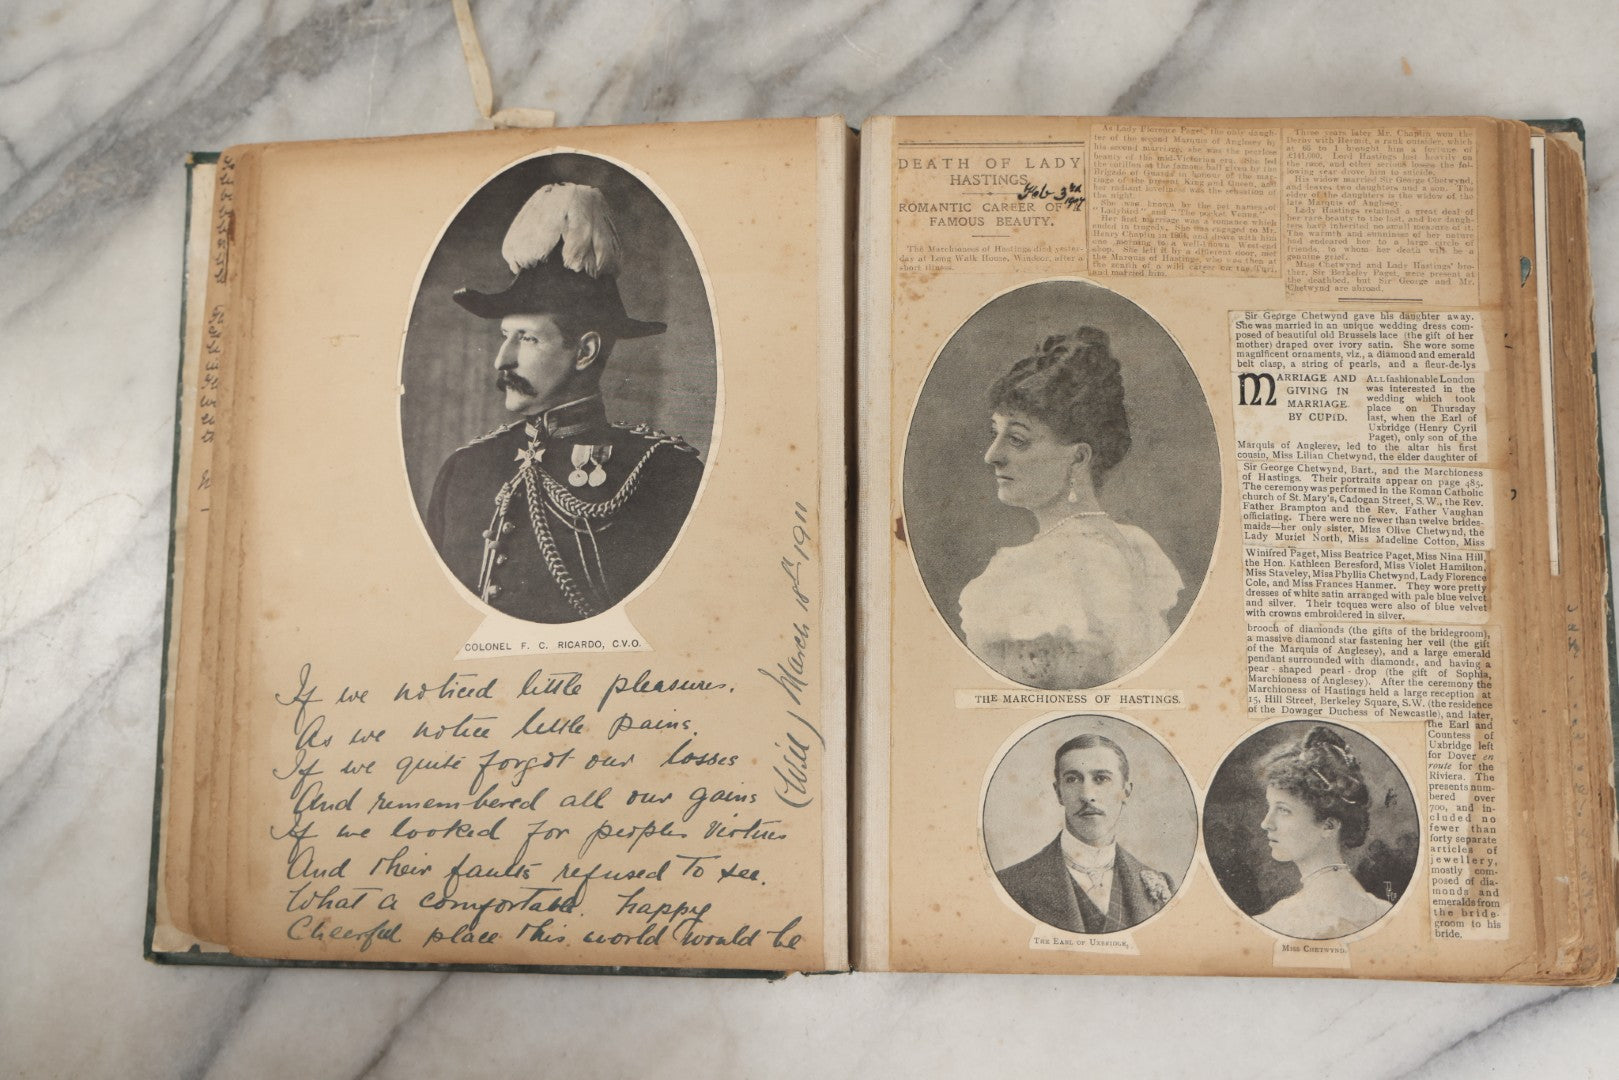 COLONEL F. C. RICARDO, C.V.O.
If we noticed little pleasures.
As we notice little pains.
If we quite forgot our losses
And remembered all our gains
If we looked for peoples Virtues
And their faults refused to see.
What a comfortable. happy
Cheerful place this world would be
(Will) March 18th 1911
DEATH OF LADY
HASTINGS.
Feb 3rd
1907
ROMANTIC CAREER OF A
FAMOUS BEAUTY.
The Marchioness of Hastings died yester-
day at Long Walk House, Windsor, after a
short illness.
As Lady Florence Paget, the only daugh-
ter of the second Marquis of Anglesey by
his second marriage, she was the peerless
beauty of the mid-Victorian era. She led
the cotillon at the famous ball given by the
Brigade of Guards in honour of the mar-
riage of the present King and Queen, and
her radiant loveliness was the sensation of
the night.
She was known by the pet names of
"Ladybird" and "The pocket Venus."
Her first marriage was a romance which
ended in tragedy. She was engaged to Mr.
Henry Chaplin in 1864, and drove with him
one morning to a well-known West-end
shop. She left it by a different door, met
the Marquis of Hastings, who was then at
the zenith of a wild career on the Turf,
and married him.
Three years later Mr. Chaplin won the
Derby with Hermit, a rank outsider, which
at 66 to 1 brought him a fortune of
£141,000. Lord Hastings lost heavily on
the race, and other serious losses the fol-
lowing year drove him to suicide.
His widow married Sir George Chetwynd,
and leaves two daughters and a son. The
elder of the daughters is the widow of the
late Marquis of Anglesey.
Lady Hastings retained a great deal of
her rare beauty to the last, and her daugh-
ters have inherited no small measure of it.
The warmth and sunniness of her nature
had endeared her to a large circle of
friends, to whom her death will be a
genuine grief.
Miss Chetwynd and Lady Hastings' bro-
ther, Sir Berkeley Paget, were present at
the deathbed, but Sir George and Mr.
Chetwynd are abroad.
Sir George Chetwynd gave his daughter away.
She was married in an unique wedding dress com-
posed of beautiful old Brussels lace (the gift of her
mother) draped over ivory satin. She wore some
magnificent ornaments, viz., a diamond and emerald
belt clasp, a string of pearls, and a fleur-de-lys
MARRIAGE AND
GIVING IN
MARRIAGE
BY CUPID.
ALL fashionable London
was interested in the
wedding which took
place on Thursday
last, when the Earl of
Uxbridge (Henry Cyril
Paget), only son of the
Marquis of Anglesey, led to the altar his first
cousin, Miss Lilian Chetwynd, the elder daughter of
Sir George Chetwynd, Bart., and the Marchioness
of Hastings. Their portraits appear on page 485.
The ceremony was performed in the Roman Catholic
church of St. Mary's, Cadogan Street, S.W., the Rev.
Father Brampton and the Rev. Father Vaughan
officiating. There were no fewer than twelve brides-
maids—her only sister, Miss Olive Chetwynd, the
Lady Muriel North, Miss Madeline Cotton, Miss
Winifred Paget, Miss Beatrice Paget, Miss Nina Hill,
the Hon. Kathleen Beresford, Miss Violet Hamilton,
Miss Staveley, Miss Phyllis Chetwynd, Lady Florence
Cole, and Miss Frances Hanmer. They wore pretty
dresses of white satin arranged with pale blue velvet
and silver. Their toques were also of blue velvet
with crowns embroidered in silver.
brooch of diamonds (the gifts of the bridegroom),
a massive diamond star fastening her veil (the gift
of the Marquis of Anglesey), and a large emerald
pendant surrounded with diamonds, and having a
pear-shaped pearl-drop (the gift of Sophia,
Marchioness of Anglesey). After the ceremony the
Marchioness of Hastings held a large reception at
15, Hill Street, Berkeley Square, S.W. (the residence
of the Dowager Duchess of Newcastle), and later,
the Earl and
Countess of
Uxbridge left
for Dover en
route for the
Riviera. The
presents num-
bered over
700, and in-
cluded no
fewer than
forty separate
articles of
jewellery,
mostly com-
posed of dia-
monds and
emeralds from
the bride-
groom to his
bride.
THE MARCHIONESS OF HASTINGS.
THE EARL OF UXBRIDGE.
MISS CHETWYND.